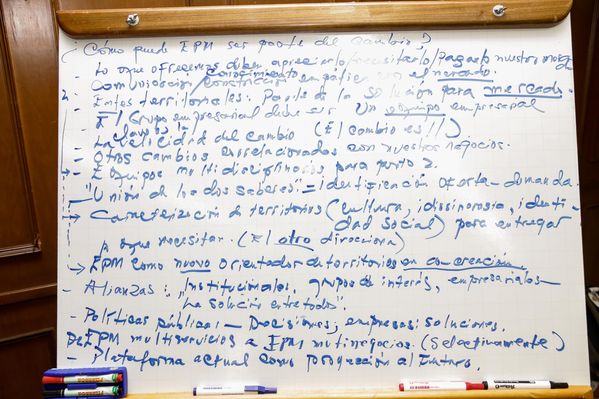 ¿Cómo puede EPM ser parte del cambio?
- Lo que ofrecemos deben apreciarlo/necesitarlo/pagarlo nuestro
Comunicación, conocimiento, empatía en el mercado.
2. Entes territoriales: Parte de la solución para mercado
El Grupo empresarial debe ser un equipo empresarial
- La velocidad del cambio (El cambio es!!)
- Otros cambios relacionados con nuestros negocios.
- Equipos multidisciplinarios para punto 2.
- "Unión de los dos saberes" = Identificación oferta-demanda.
→ Caracterización de territorios (cultura, idiosincrasia, identidad social) para entregar
lo que necesitan. (El otro direcciona)
→ EPM como nuevo orientador de territorios en co-creación
- Alianzas: "Institucionales, grupos de interés, empresariales
La solución entre todos".
- Políticas públicas - Decisiones, empresas: soluciones.
De EPM multiservicios a EPM multinegocios. (Selectivamente)
- Plataforma actual como proyección al futuro.